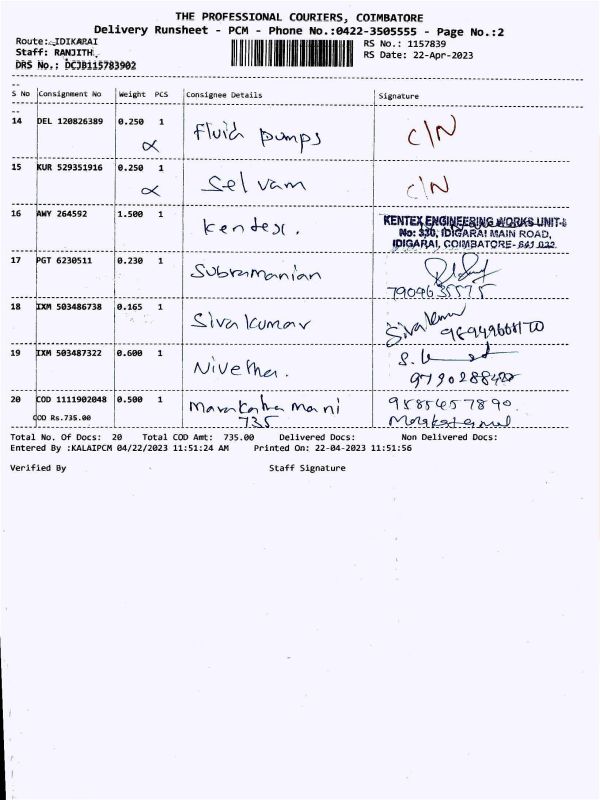 THE PROFESSIONAL COURIERS, COIMBATORE
Delivery Runsheet - PCM - Phone No.:0422-3505555 - Page No.:2
Route: IDIKARAI RS No.: 1157839
Staff: RANJITH. RS Date: 22-Apr-2023
DRS No.: DCJB115783902
S No Consignment No Weight PCS Consignee Details Signature
14 DEL 120826389 0.250 1 Fluid pumps C/N
15 KUR 529351916 0.250 1 Selvam C/N
16 AWY 264592 1.500 1 Kentex. KENTEX ENGINEERING WORKS UNIT-
No: 330, IDIGARAI MAIN ROAD,
IDIGARAI, COIMBATORE- 641 022.
17 PGT 6230511 0.230 1 Subramanian
7904635575
18 IXM 503486738 0.165 1 Sivakumar Sivakumar
19 IXM 503487322 0.600 1 Nivetha.
20 COD 1111902048 0.500 1 Marakathamani
COD Rs.735.00 735
Total No. Of Docs: 20 Total COD Amt: 735.00 Delivered Docs: Non Delivered Docs:
Entered By :KALAIPCM 04/22/2023 11:51:24 AM Printed On: 22-04-2023 11:51:56
Verified By Staff Signature